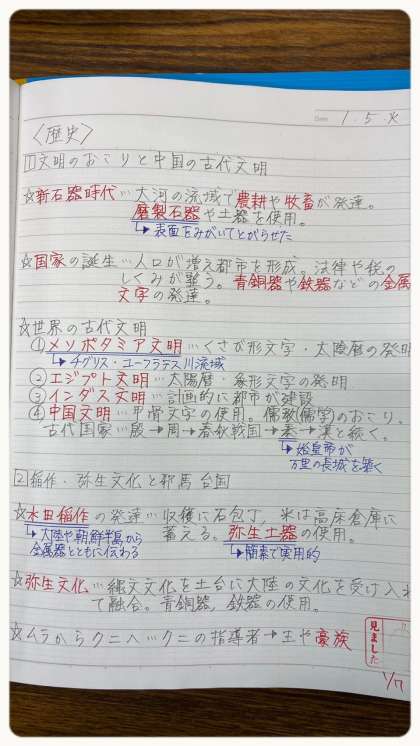 Date 1.5.火
〈歴史〉
1 文明のおこりと中国の古代文明
☆新石器時代…大河の流域で農耕や牧畜が発達。
磨製石器や土器を使用。
↳表面をみがいてとがらせた
☆国家の誕生…人口が増え都市を形成。法律や税の
しくみが整う。青銅器や鉄器などの金属
文字の発達。
☆世界の古代文明
①メソポタミア文明…くさび形文字・太陰暦の発明
↳チグリス・ユーフラテス川流域
②エジプト文明…太陽暦・象形文字の発明
③インダス文明…計画的に都市が建設
④中国文明…甲骨文字の使用。儒教(儒学)のおこり。
古代国家…殷→周→春秋戦国→秦→漢と続く。
↳始皇帝が
万里の長城を築く
2 稲作・弥生文化と邪馬台国
☆水田稲作の発達…収穫に石包丁、米は高床倉庫に
↳大陸や朝鮮半島から
金属器とともに伝わる
蓄える。弥生土器の使用。
↳簡素で実用的
☆弥生文化…縄文文化を土台に大陸の文化を受け入れ
て融合。青銅器,鉄器の使用。
☆ムラからクニへ…クニの指導者→王や豪族
見ました
1/7